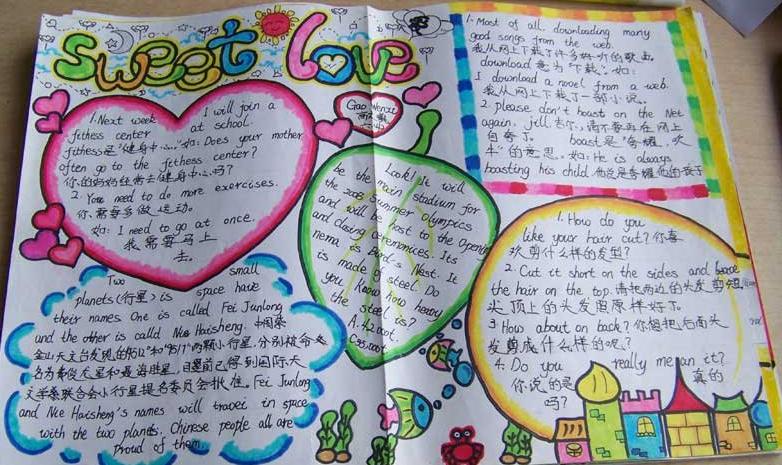 sweet love
1. Next week I will join a
fithess center at school.
fithess是"健身中心."如: Does your mother
often go to the fithess center?
你的妈妈经常去健身中心吗?
2. You need to do more exercises.
你需要多做运动。
如: I need to go at once.
我需要马上
去。
Gao Wenxi
Look! It will
be the main stadium for
the 2008 Summer Olympics
and will be host to the Opening
and closing ceremonies. Its
nema is Bird's Nest. It
is made of steel. Do
you know how heavy
the steel is?
A. 42000t.
C. 95000t
1. Most of all downloading many
good songs from the web.
我从网上下载了许多好听的歌曲。
download 意为"下载". 如:
I download a novel from a web.
我从网上下载了一部小说。
2. please don't boast on the Net
again, jell 吉尔,请不要再在网上
自夸了. boast是"夸耀,吹
牛"的意思. 如: He is always
boasting his child. 他总是夸耀他的孩子
Two small
planets(行星) is space have
their names One is called Fei Junlong
and the other is calld Nie Haisheng. 中国紫
金山天文台发现的"9512"和"9517"两颗小行星,分别被命
名为费俊龙星和聂海胜星,目前已得到国际天
文学家联合会小行星提名委员会批准。Fei Junlong
and Nie Haisheng's names will travei in space
with the two planets. Chinese people all are
Proud of them
1. How do you
like your hair cut? 你喜
欢剪什么样的发型?
2. Cut it short on the sides and
the hair on the top. 请把两边的头发剪短,
头顶上的头发照原样好了。
3. How about on back? 你想把后面头
发剪成什么样的呢?
4. Do you really mean it?
你说的是真的
吗?